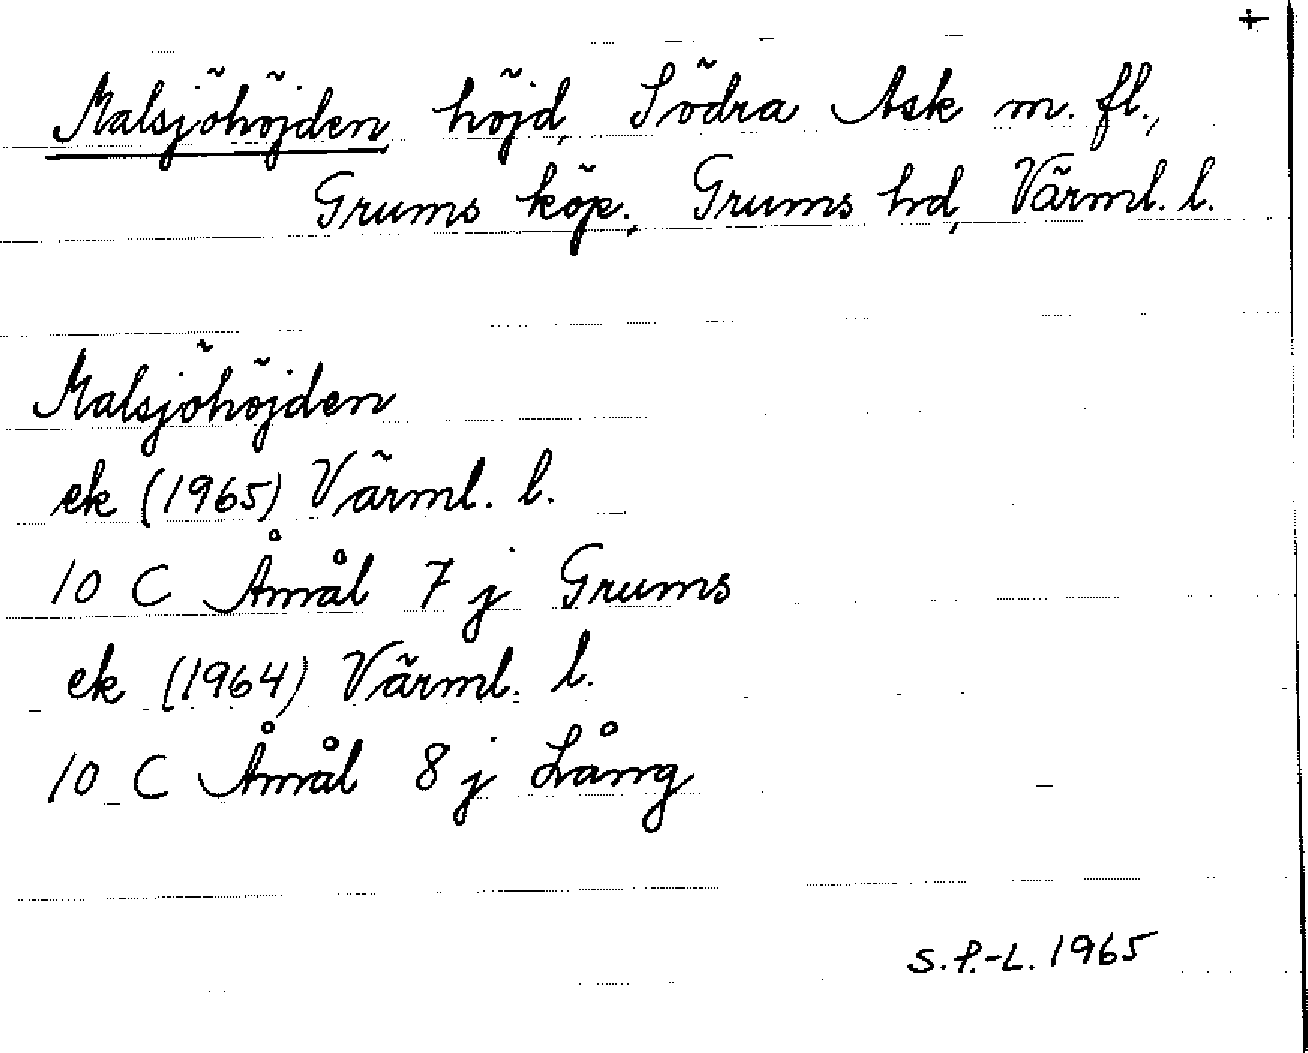 +
Malsjöhöjden höjd, Södra Ask m. fl.,
Grums köp., Grums hd, Värml. l.
Malsjöhöjden
ek (1965) Värml. l.
10 C Åmål 7 j Grums
ek (1964) Värml. l.
10 C Åmål 8 j Lång
S.P.-L. 1965